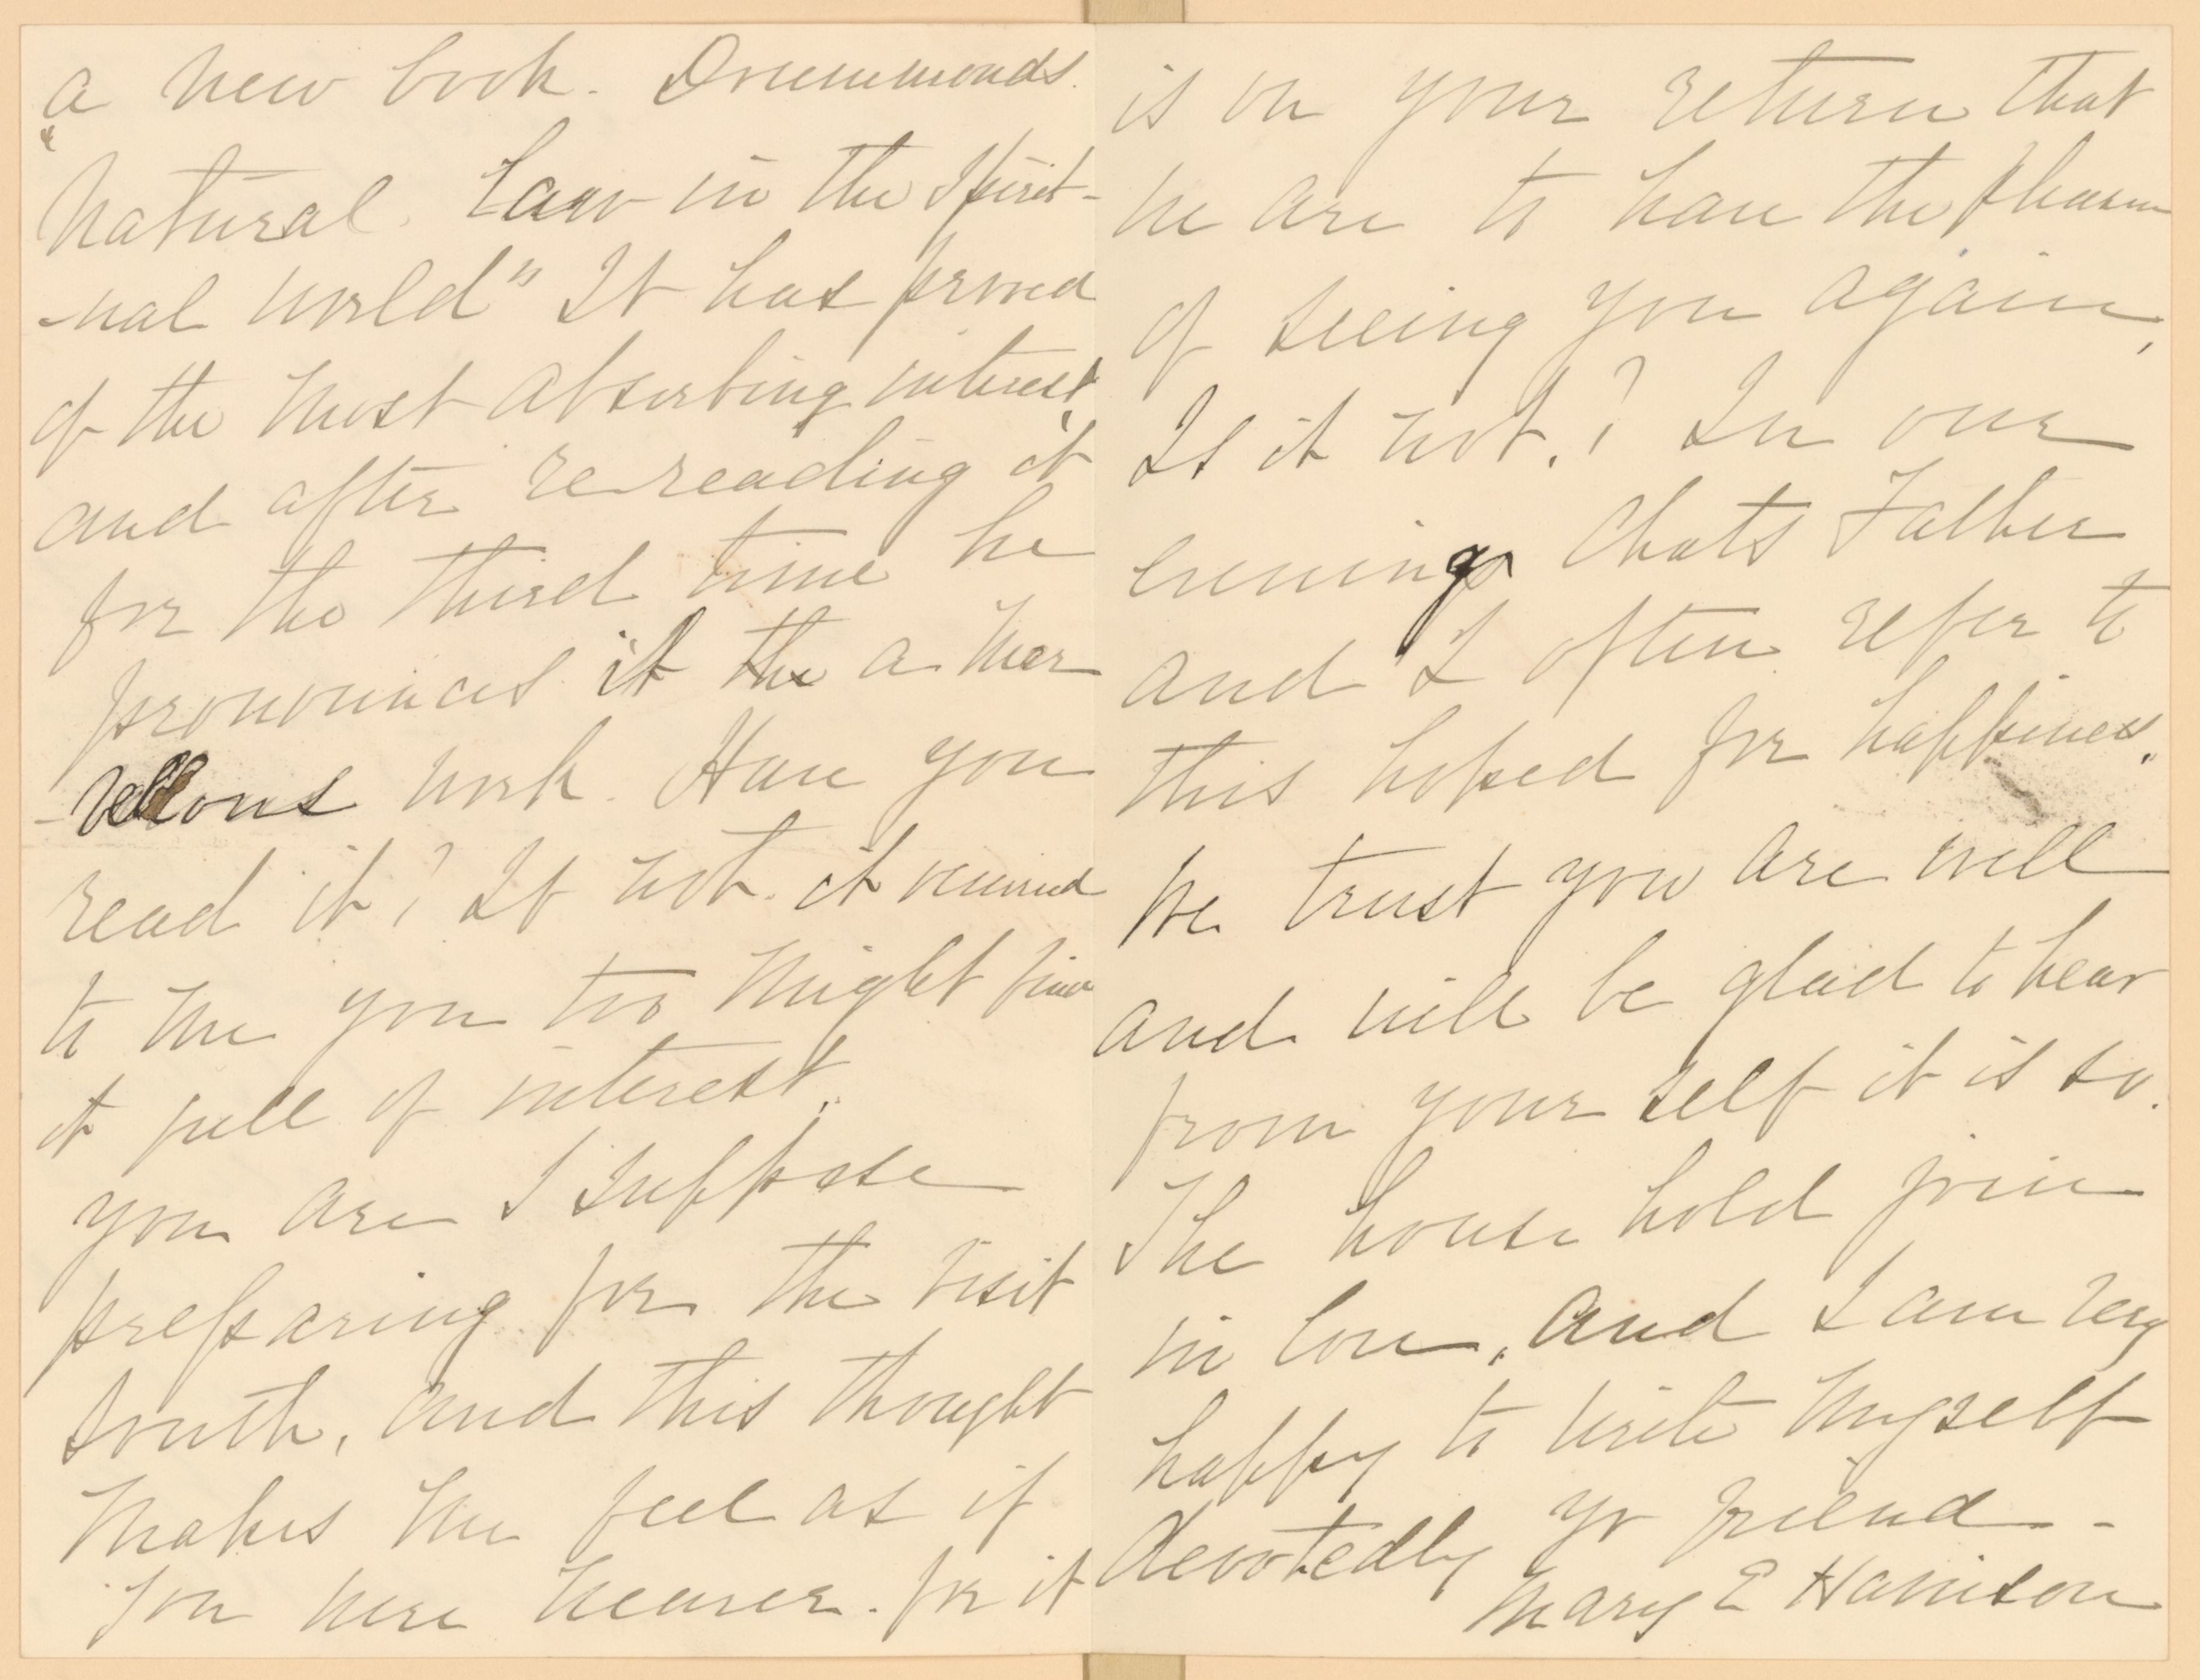 a new book. Drummonds.
"Natural. Law in the Spirit-
-ual world" It has proved
of the most absorbing interest,
and after re-reading it
for the third time he
pronounces it the a mar
-vellous work. Have you
read it? If not. it occurred
to me you too might find
it full of interest.
You are I suppose
preparing for the visit
South, and this thought
makes me feel as if
you were nearer. for it
is on your return that
we are to have the pleasure
of seeing you again,
Is it not.? In our
evening chats Father
and I often refer to
this hoped for happiness.
We trust you are well
and will be glad to hear
from your self it is so.
The house hold join
in love, and I am very
happy to write myself
devotedly yr friend -
Mary E Harrison